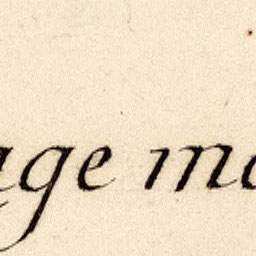 age ma